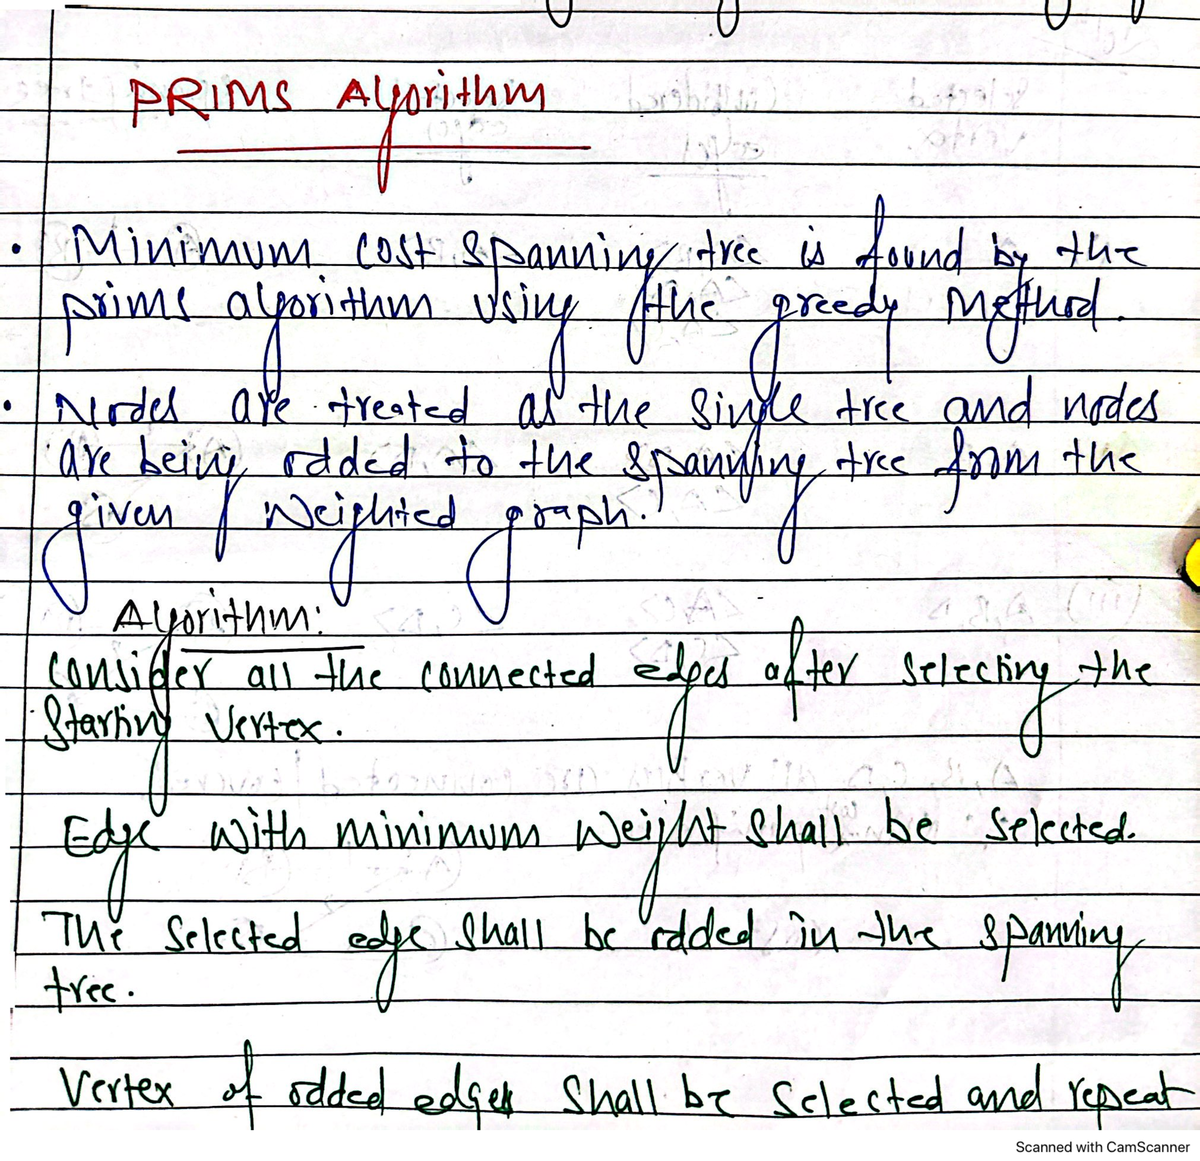 PRIMS Algorithm
• Minimum cost spanning tree is found by the
prims algorithm using the greedy Method.
• Nodes are treated as the single tree and nodes
are being added to the spanning tree from the
given Weighted graph.
Algorithm:
Consider all the connected edges after selecting the
Starting Vertex.
Edge with minimum Weight shall be selected.
The selected edge shall be added in the spanning
tree.
Vertex of added edges shall be selected and repeat
Scanned with CamScanner